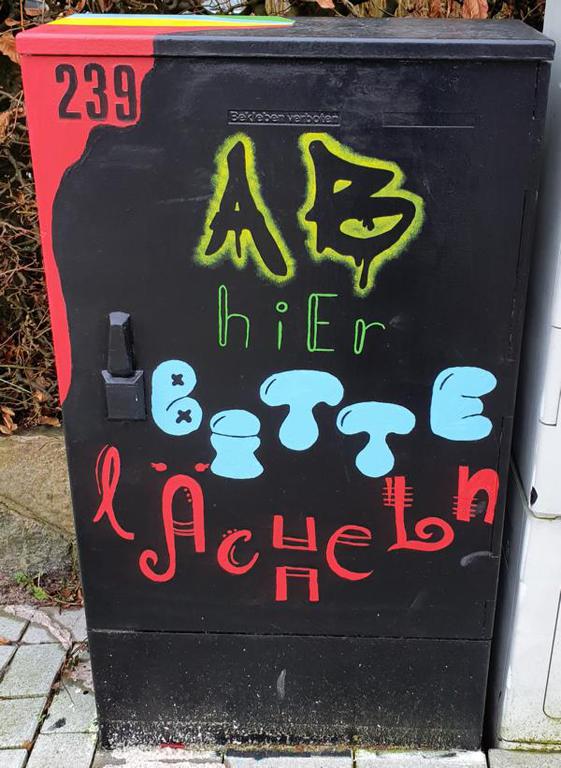 239
Bekleben verboten
AB
hiEr
BITTE
lÄcHeLn